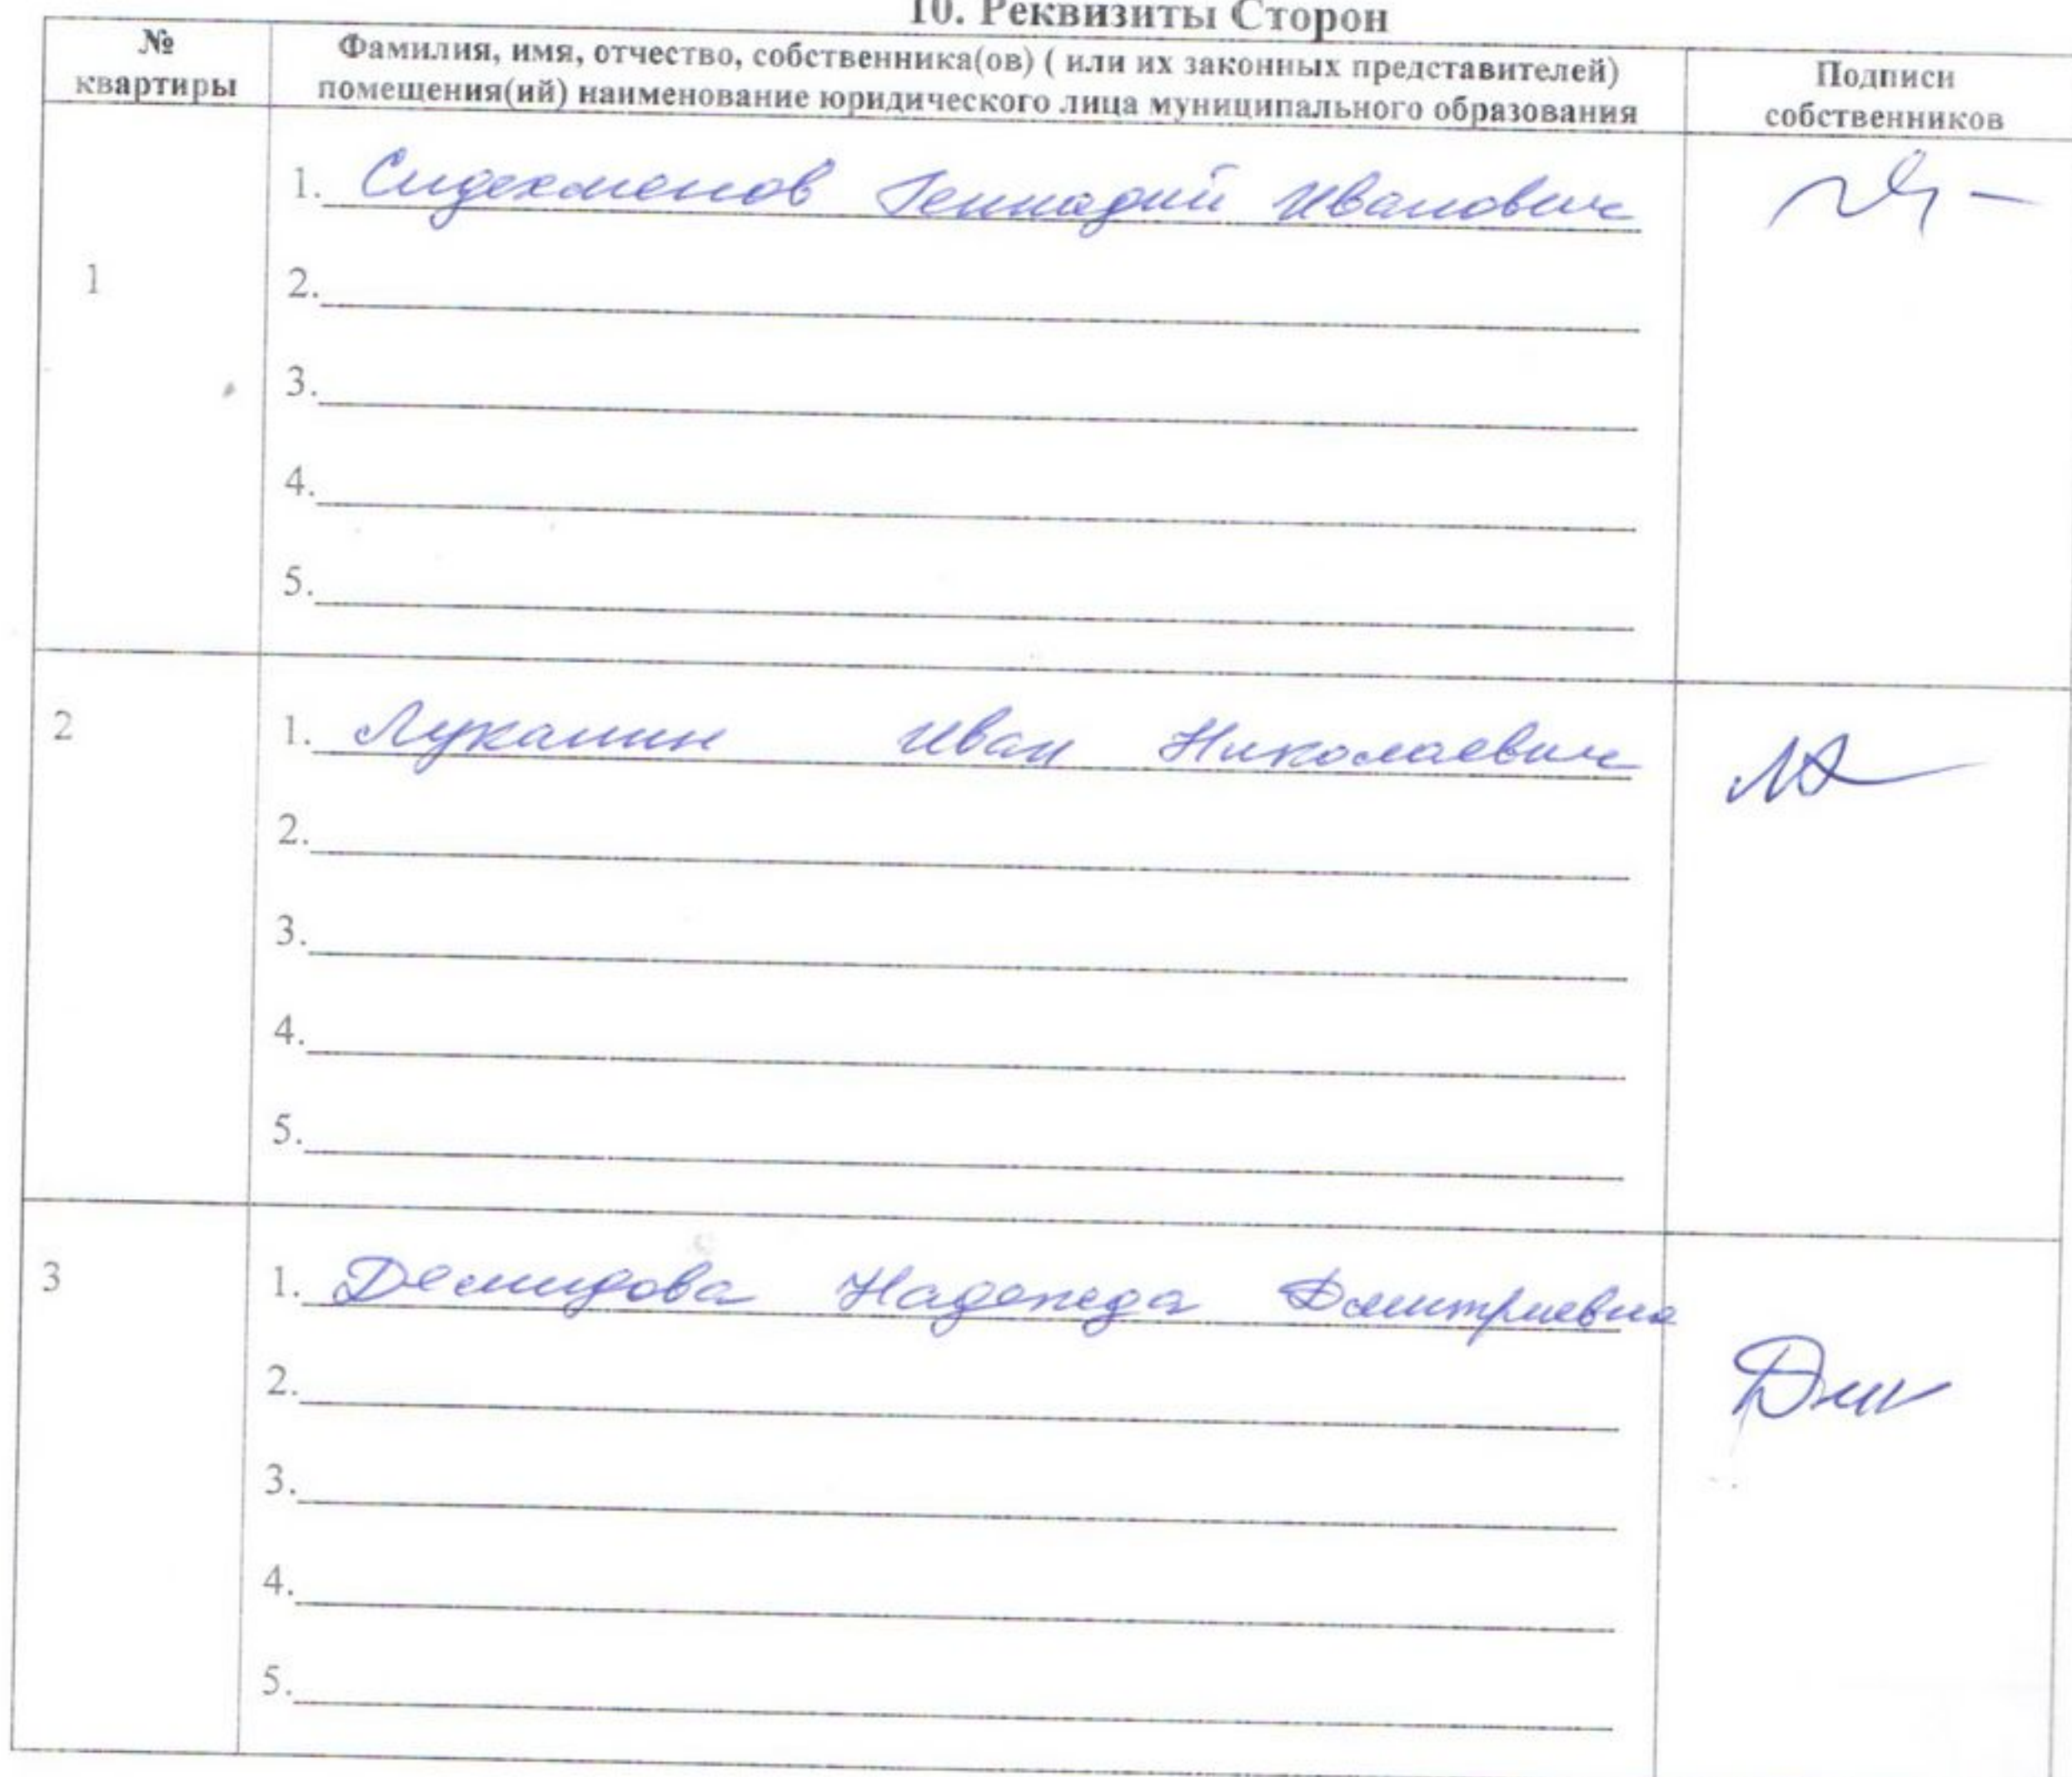 10. Реквизиты Сторон
№ квартиры
Фамилия, имя, отчество, собственника(ов) ( или их законных представителей)
помещения(ий) наименование юридического лица муниципального образования
Подписи
собственников
1
1. Сидехменов Геннадий Иванович
2.
3.
4.
5.
2
1. Лукашин Иван Николаевич
2.
3.
4.
5.
3
1. Демидова Надежда Дмитриевна
2.
3.
4.
5.